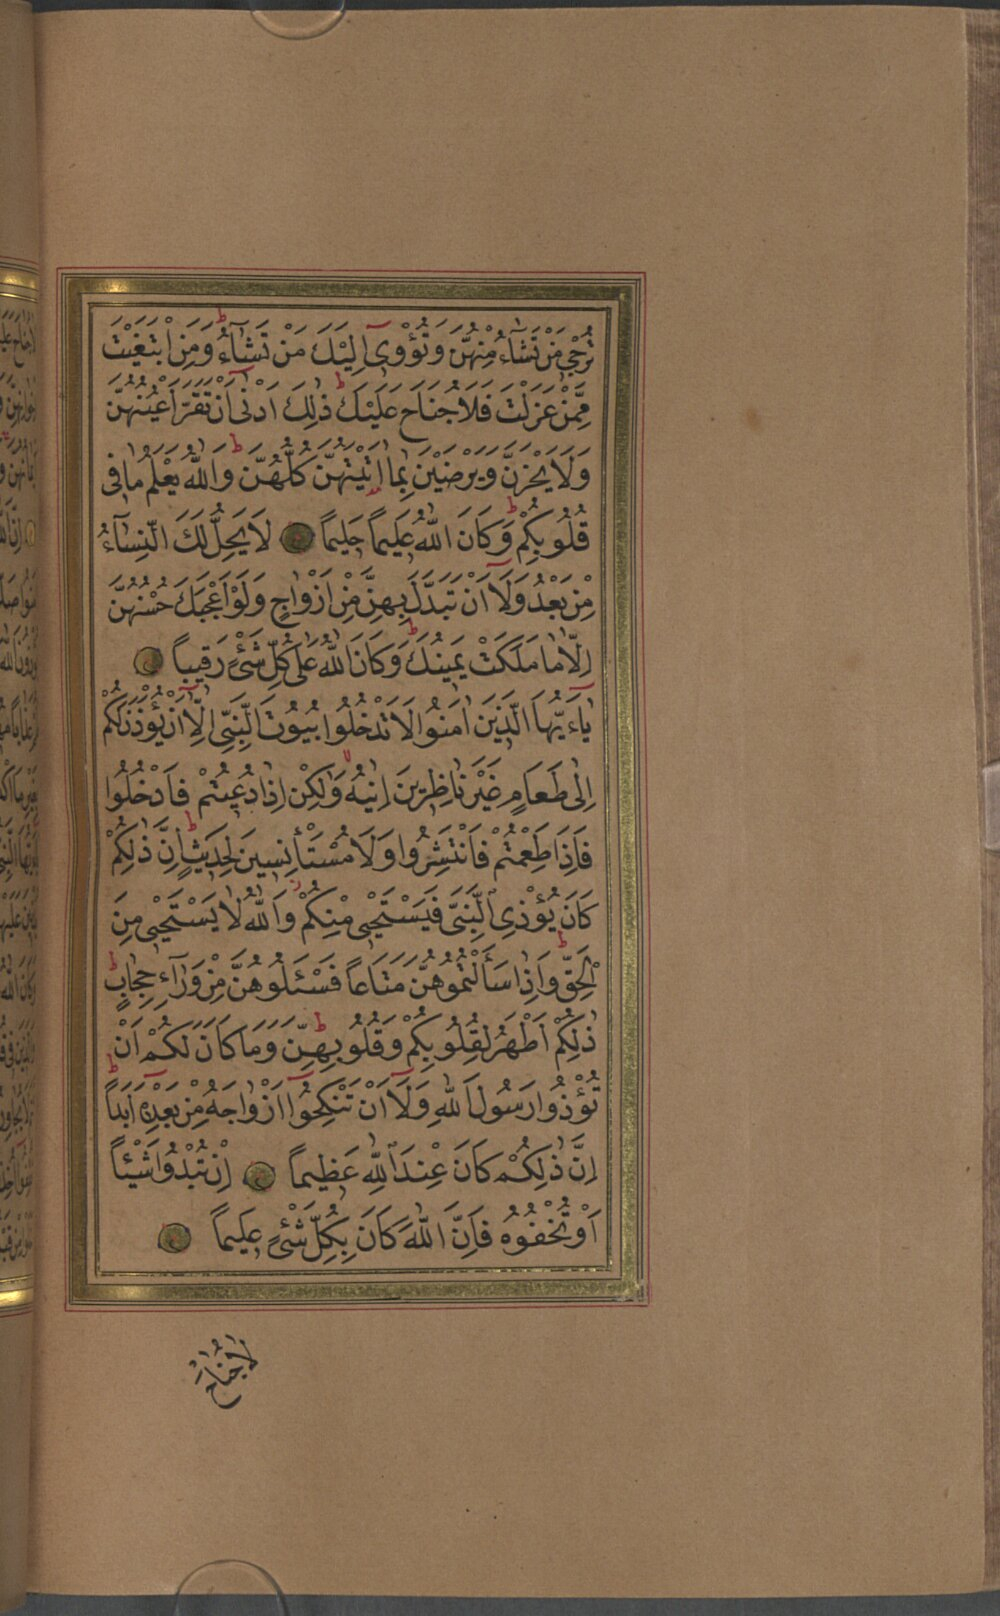 تُرْجِي مَنْ تَشَآءُ مِنْهُنَّ وَتُؤْوِىٓ اِلَيْكَ مَنْ تَشَآءُ ط وَمَنِ ابْتَغَيْتَ
مِمَّنْ عَزَلْتَ فَلَا جُنَاحَ عَلَيْكَ ط ذٰلِكَ اَدْنٰٓى اَنْ تَقَرَّ اَعْيُنُهُنَّ
وَلَا يَحْزَنَّ وَيَرْضَيْنَ بِمَٓا اٰتَيْتَهُنَّ كُلُّهُنَّ ط وَاللّٰهُ يَعْلَمُ مَا فِى
قُلُوبِكُمْ ط وَكَانَ اللّٰهُ عَلِيمًا حَلِيمًا لَا يَحِلُّ لَكَ النِّسَٓاءُ
مِنْ بَعْدُ وَلَٓا اَنْ تَبَدَّلَ بِهِنَّ مِنْ اَزْوَاجٍ وَلَوْ اَعْجَبَكَ حُسْنُهُنَّ
اِلَّا مَا مَلَكَتْ يَمِينُكَ ط وَكَانَ اللّٰهُ عَلٰى كُلِّ شَىْءٍ رَقِيبًا
يَٓا اَيُّهَا الَّذِينَ اٰمَنُوا لَا تَدْخُلُوا بُيُوتَ النَّبِىِّ اِلَّٓا اَنْ يُؤْذَنَ لَكُمْ
اِلٰى طَعَامٍ غَيْرَ نَاظِرِينَ اِنٰيهُ وَلٰكِنْ اِذَا دُعِيتُمْ فَادْخُلُوا
فَاِذَا طَعِمْتُمْ فَانْتَشِرُوا وَلَا مُسْتَأْنِسِينَ لِحَدِيثٍ ط اِنَّ ذٰلِكُمْ
كَانَ يُؤْذِى النَّبِىَّ فَيَسْتَحْيٖ مِنْكُمْ وَاللّٰهُ لَا يَسْتَحْيٖ مِنَ
الْحَقِّ ط وَاِذَا سَأَلْتُمُوهُنَّ مَتَاعًا فَسْـَٔلُوهُنَّ مِنْ وَرَٓاءِ حِجَابٍ ط
ذٰلِكُمْ اَطْهَرُ لِقُلُوبِكُمْ وَقُلُوبِهِنَّ ط وَمَا كَانَ لَكُمْ اَنْ
تُؤْذُوا رَسُولَ اللّٰهِ وَلَٓا اَنْ تَنْكِحُٓوا اَزْوَاجَهُ مِنْ بَعْدِهٖٓ اَبَدًا ط
اِنَّ ذٰلِكُمْ كَانَ عِنْدَ اللّٰهِ عَظِيمًا اِنْ تُبْدُوا شَيْـًٔا
اَوْ تُخْفُوهُ فَاِنَّ اللّٰهَ كَانَ بِكُلِّ شَىْءٍ عَلِيمًا
لَا جُنَاحَ